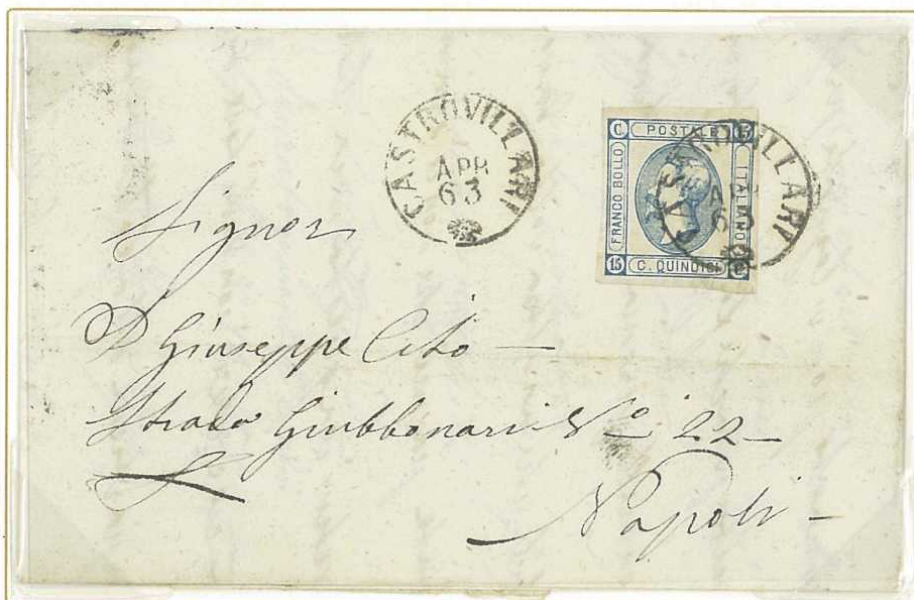 CASTROVILLARI
APR
63
C POSTALE 15
FRANCO BOLLO
ITALIANO
15 C. QUINDICI C
CASTROVILLARI
63
Signor
D Giuseppe Cito —
Strada Giubbonari No 22 —
Napoli —